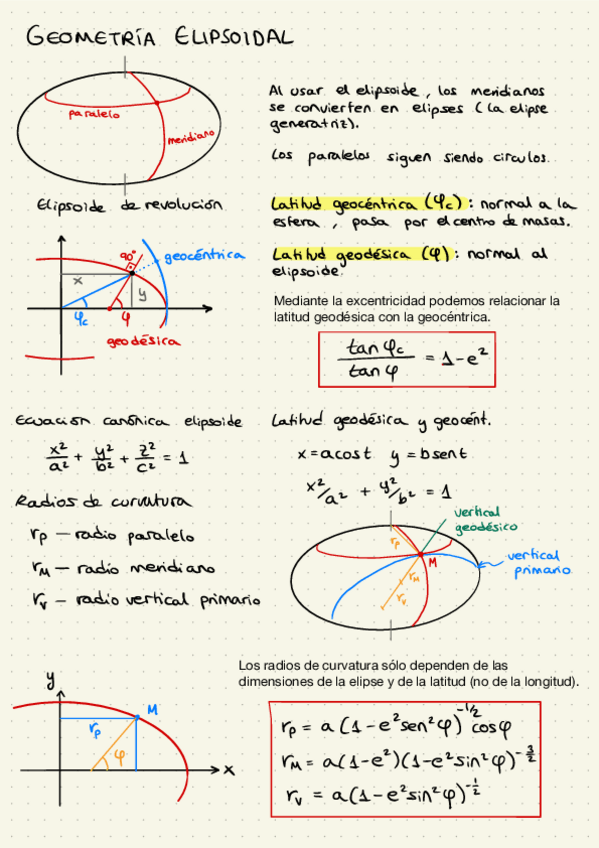 GEOMETRÍA ELIPSOIDAL
paralelo
meridiano
Elipsoide de revolución
Al usar el elipsoide, los meridianos
se convierten en elipses (la elipse
generatriz).
Los paralelos siguen siendo círculos.
Latitud geocéntrica (φc): normal a la
esfera, pasa por el centro de masas.
Latitud geodésica (φ): normal al
elipsoide.
90°
geocéntrica
x
y
φc
φ
geodésica
Mediante la excentricidad podemos relacionar la
latitud geodésica con la geocéntrica.
tan φc / tan φ = 1 - e²
Ecuación canónica elipsoide
x²/a² + y²/b² + z²/c² = 1
Radios de curvatura
rp — radio paralelo
rM — radio meridiano
rv — radio vertical primario
Latitud geodésica y geocént.
x = a cos t y = b sen t
x²/a² + y²/b² = 1
vertical
geodésico
rp
M
vertical
primario
rM
rv
Los radios de curvatura sólo dependen de las
dimensiones de la elipse y de la latitud (no de la longitud).
y
M
rp
φ
x
rp = a (1 - e² sen² φ)^-1/2 cos φ
rM = a(1 - e²)(1 - e² sin² φ)^-3/2
rv = a (1 - e² sin² φ)^-1/2